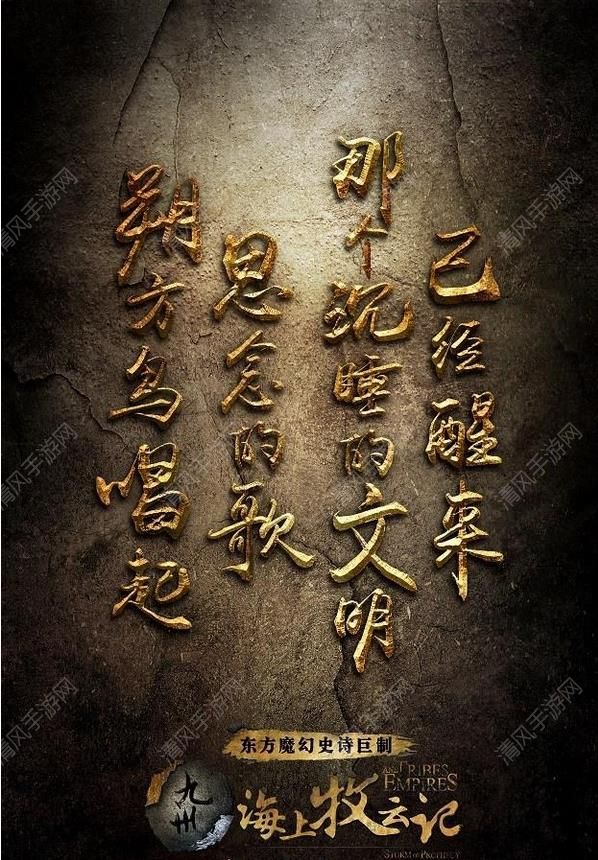 朔方鸟唱起
思念的歌
那个沉睡的文明
已经醒来
东方魔幻史诗巨制
九州
海上牧云记
TRIBES
AND EMPIRES
STORM OF PROPHECY
清风手游网